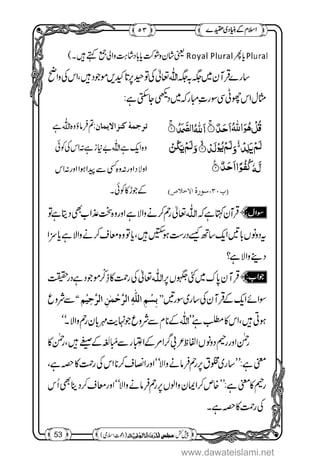 اسلام کے بنیادی عقیدے ۵۳
Plural یا پھر Royal Plural یعنی شان و شوکت یا بادشاہت والی جمع کہتے ہیں۔)
سارے قرآن میں جگہ بہ جگہ اللہ تعالیٰ کی توحید کی تائیدیں موجود ہیں، اس کی واضح
مثال اس چھوٹی سی سورت مبارکہ میں دیکھی جاسکتی ہے:
قُلْ هُوَ اللّٰهُ اَحَدٌ ۚ اَللّٰهُ الصَّمَدُ ۚ
لَمْ یَلِدْ ۙ وَ لَمْ یُوْلَدْ ۙ وَ لَمْ یَكُنْ
لَّهٗ كُفُوًا اَحَدٌ
(پ۳۰، سورۃ الاخلاص)
ترجمۂ کنز الایمان: تم فرماؤ وہ اللہ ہے
وہ ایک ہے اللہ بے نیاز ہے نہ اس کی کوئی
اولاد اور نہ وہ کسی سے پیدا ہوا اور نہ اس
کے جوڑ کا کوئی۔
سوال: قرآن کہتا ہے کہ اللہ تعالیٰ رحم کرنے والا ہے اور وہ عذاب بھی دیتا ہے، تو
یہ دونوں باتیں ایک ساتھ کیسے درست ہوسکتی ہیں، یا تو وہ معاف کرنے والا ہے یا سزا
دینے والا ہے؟
جواب: قرآن پاک میں کئی جگہوں پر اللہ تعالیٰ کی رحمت کا ذکر موجود ہے درحقیقت
سوائے ایک کے قرآن کی ساری سورتیں ”بِسْمِ اللّٰهِ الرَّحْمٰنِ الرَّحِیْمِ“ سے شروع
ہوتی ہیں، اس کا مطلب ہے ”اللہ کے نام سے شروع جو نہایت مہربان رحم والا۔“
رحمن اور رحیم دونوں الفاظ عربی گرامر کے اعتبار سے مبالغہ کے صیغے ہیں، رحمن کا
معنی ہے: ”ساری مخلوق پر رحم فرمانے والا“ اور انصاف کرنا اس کی رحمت کا حصہ ہے،
رحیم کا معنی ہے: ”خاص کر ایمان والوں پر رحم فرمانے والا“ اور معاف کردینا بھی اُس
کی رحمت کا حصہ ہے۔
53 پیش کش: مجلس (دعوت اسلامی)
www.dawateislami.net